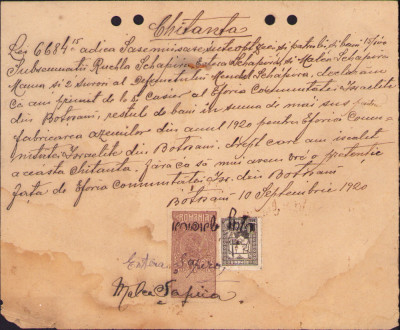 Chitanta
Lei 6684 15 adica Sasemiisasesuteoptzeci si patru lei si bani 15 
Subsemnatii Ruchla Schapira, Schapira si Malca Schapira
Mama si 2 surori al Defunctului Mendel Schapira, declaram
Ca am primit de la casier al Eforia Comunitatei Israelite
din Botosani, restul de bani in suma de mai sus
fabricarea azimilor din anul 1920 pentru Eforia Comu-
nitatei Israelite din Botosani. Drept care am iscalit
aceasta Chitanta. Fara ca să mai avem vre o pretentie
fata de Eforia Comunitatei Isr. din Botosani
Botosani 10 Septembrie 1920
ROMANIA
Malca Sapira